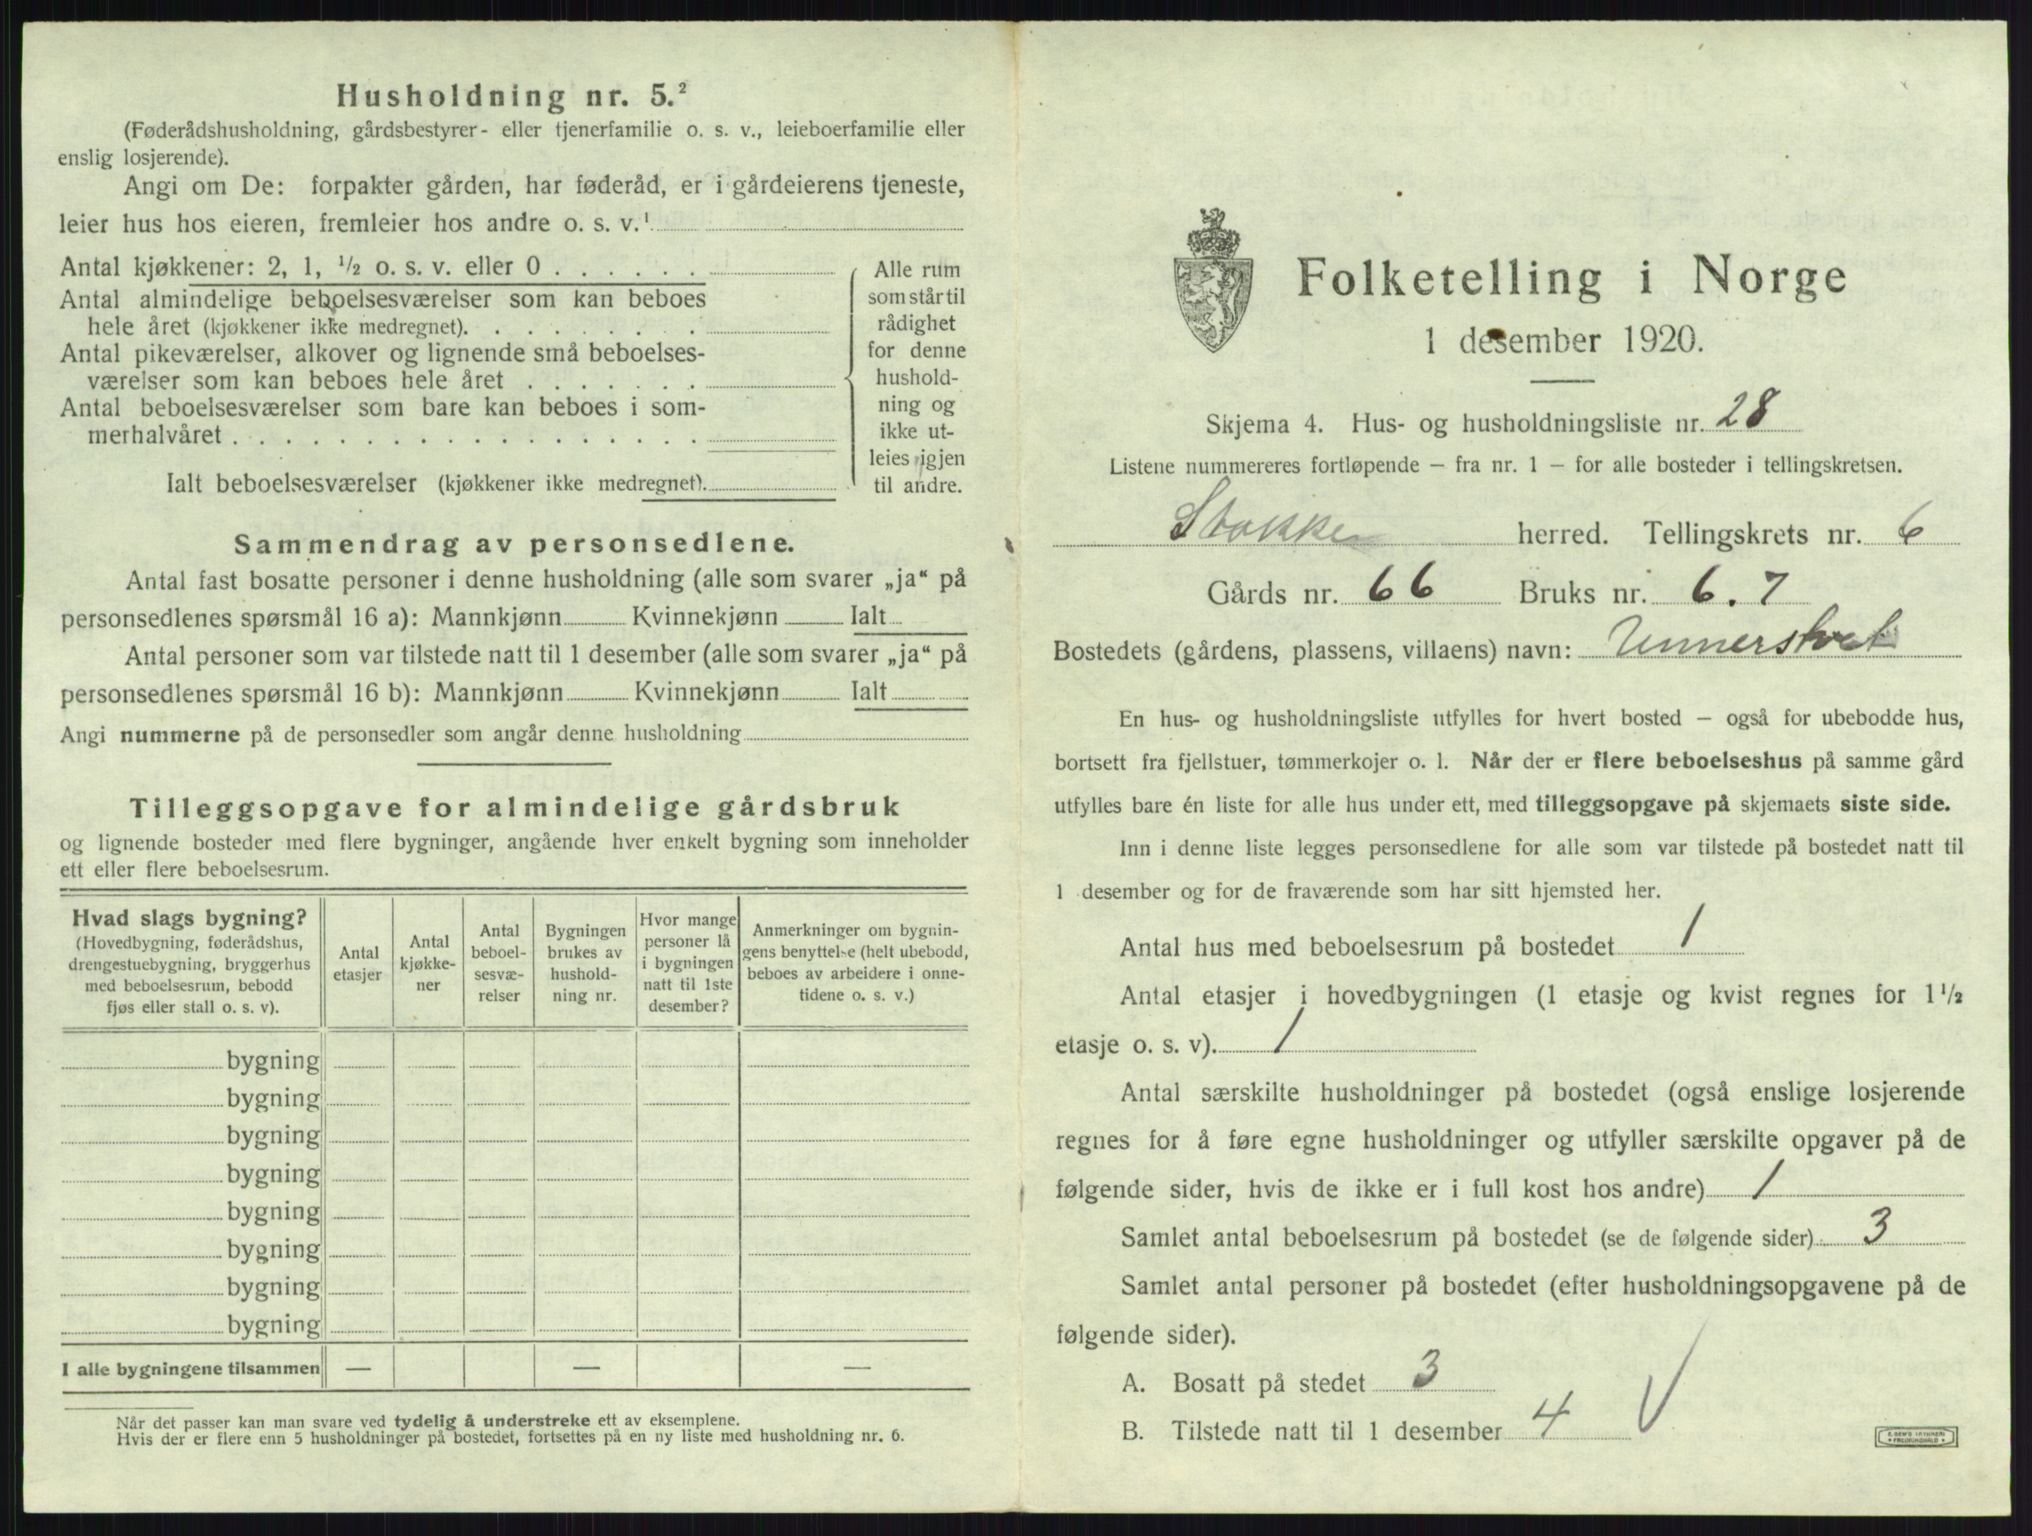 Husholdning nr. 5.²
(Føderådshusholdning, gårdsbestyrer- eller tjenerfamilie o. s. v., leieboerfamilie eller
enslig losjerende).
Angi om De: forpakter gården, har føderåd, er i gårdeierens tjeneste,
leier hus hos eieren, fremleier hos andre o. s. v.¹
Antal kjøkkener: 2, 1, ½ o. s. v. eller 0 . . . . . .
Antal almindelige beboelsesværelser som kan beboes
hele året (kjøkkener ikke medregnet). . . . . . . . .
Antal pikeværelser, alkover og lignende små beboelses-
værelser som kan beboes hele året . . . . . . .
Antal beboelsesværelser som bare kan beboes i som-
merhalvåret . . . . . . . . . . . . . . . . . .
Ialt beboelsesværelser (kjøkkener ikke medregnet).
Alle rum
som står til
rådighet
for denne
hushold-
ning og
ikke ut-
leies igjen
til andre.
Sammendrag av personsedlene.
Antal fast bosatte personer i denne husholdning (alle som svarer „ja“ på
personsedlenes spørsmål 16 a): Mannkjønn Kvinnekjønn Ialt
Antal personer som var tilstede natt til 1 desember (alle som svarer „ja“ på
personsedlenes spørsmål 16 b): Mannkjønn Kvinnekjønn Ialt
Angi nummerne på de personsedler som angår denne husholdning
Tilleggsopgave for almindelige gårdsbruk
og lignende bosteder med flere bygninger, angående hver enkelt bygning som inneholder
ett eller flere beboelsesrum.
Hvad slags bygning?
(Hovedbygning, føderådshus,
drengestuebygning, bryggerhus
med beboelsesrum, bebodd
fjøs eller stall o. s. v).
Antal
etasjer
Antal
kjøkke-
ner
Antal
beboel-
sesvæ-
relser
Bygningen
brukes av
hushold-
ning nr.
Hvor mange
personer lå
i bygningen
natt til 1ste
desember?
Anmerkninger om bygnin-
gens benyttelse (helt ubebodd,
beboes av arbeidere i onne-
tidene o. s. v.)
bygning
bygning
bygning
bygning
bygning
bygning
bygning
bygning
I alle bygningene tilsammen — — —
Når det passer kan man svare ved tydelig å understreke ett av eksemplene.
Hvis der er flere enn 5 husholdninger på bostedet, fortsettes på en ny liste med husholdning nr. 6.
Folketelling i Norge
1 desember 1920.
Skjema 4. Hus- og husholdningsliste nr. 28
Listene nummereres fortløpende – fra nr. 1 – for alle bosteder i tellingskretsen.
Stokke herred. Tellingskrets nr. 6
Gårds nr. 66 Bruks nr. 6. 7
Bostedets (gårdens, plassens, villaens) navn: Unnerstvet
En hus- og husholdningsliste utfylles for hvert bosted – også for ubebodde hus,
bortsett fra fjellstuer, tømmerkojer o. l. Når der er flere beboelseshus på samme gård
utfylles bare én liste for alle hus under ett, med tilleggsopgave på skjemaets siste side.
Inn i denne liste legges personsedlene for alle som var tilstede på bostedet natt til
1 desember og for de fraværende som har sitt hjemsted her.
Antal hus med beboelsesrum på bostedet 1
Antal etasjer i hovedbygningen (1 etasje og kvist regnes for 1½
etasje o. s. v). 1
Antal særskilte husholdninger på bostedet (også enslige losjerende
regnes for å føre egne husholdninger og utfyller særskilte opgaver på de
følgende sider, hvis de ikke er i full kost hos andre) 1
Samlet antal beboelsesrum på bostedet (se de følgende sider) 3
Samlet antal personer på bostedet (efter husholdningsopgavene på de
følgende sider).
A. Bosatt på stedet 3
B. Tilstede natt til 1 desember 4 V